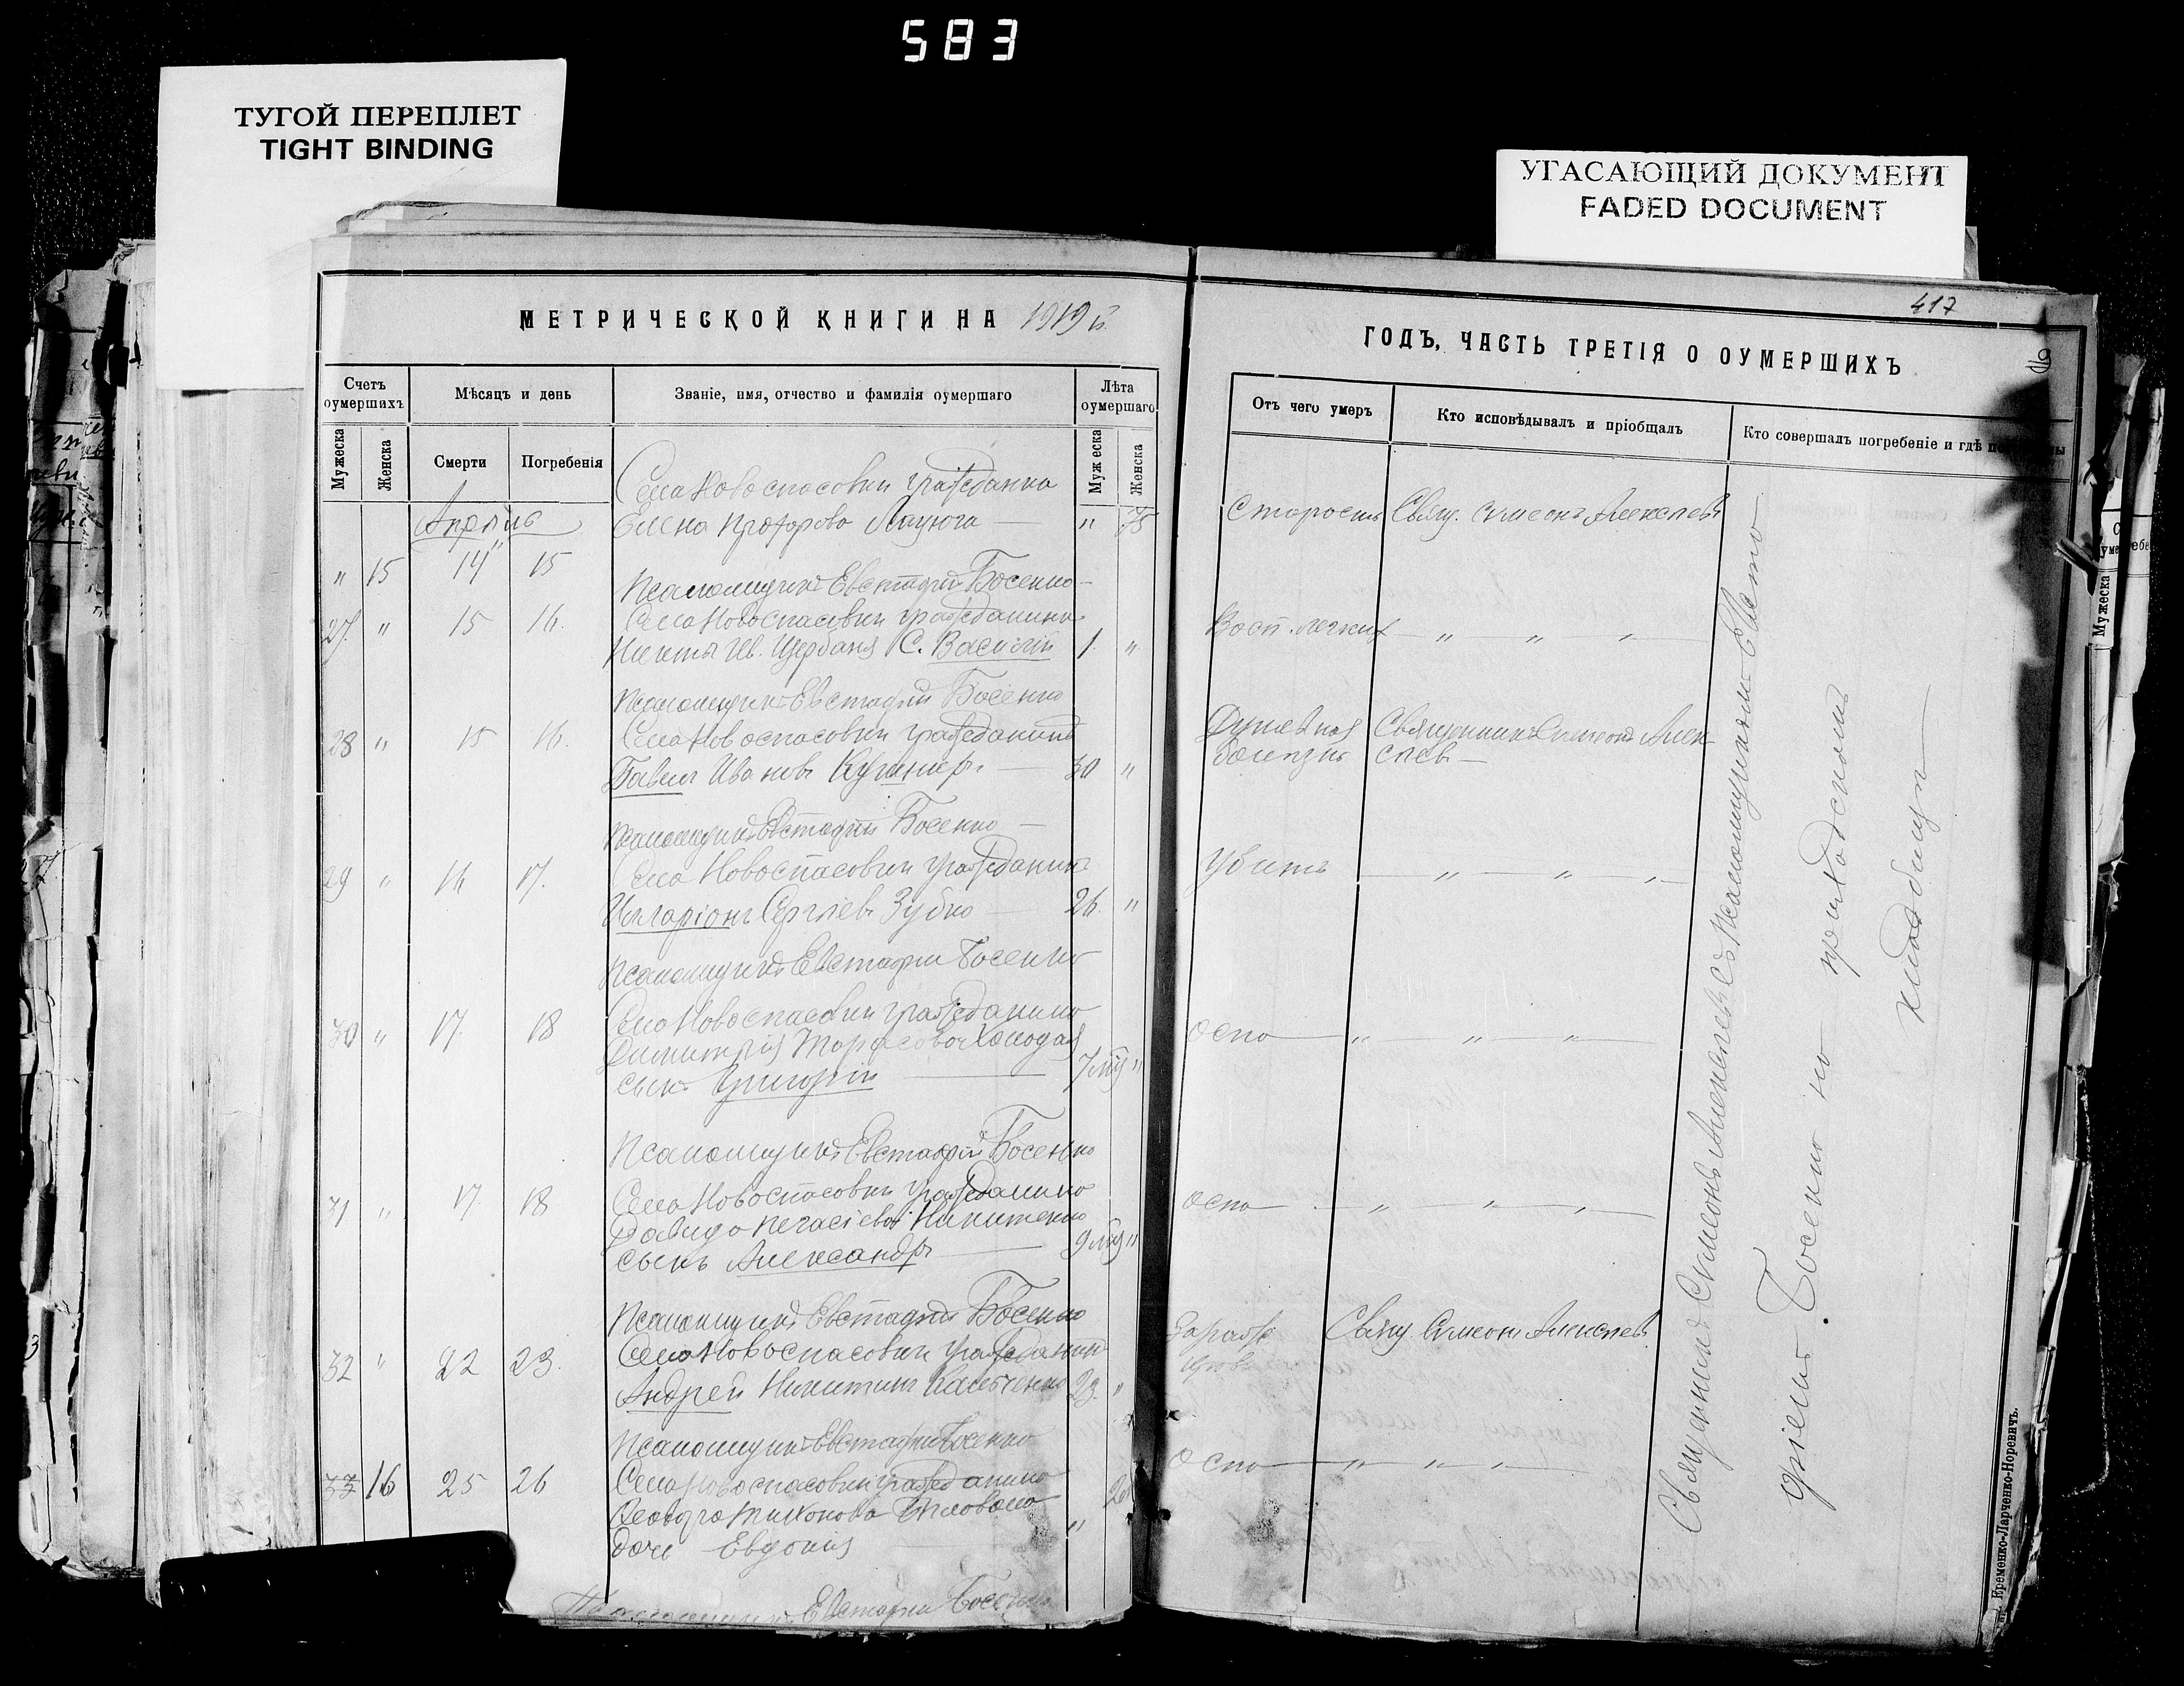 583
ТУГОЙ ПЕРЕПЛЕТ
TIGHT BINDING
УГАСАЮЩИЙ ДОКУМЕНТ
FADED DOCUMENT
417
МЕТРИЧЕСКОЙ КНИГИ НА 1919й
ГОДЪ, ЧАСТЬ ТРЕТІЯ О ОУМЕРШИХЪ
Счетъ оумершихъ
Мѣсяцъ и день
Званіе, имя, отчество и фамилія оумершаго
Лѣта оумершаго
Отъ чего умеръ
Кто исповѣдывалъ и пріобщалъ
Кто совершалъ погребеніе и гдѣ
Мужеска
Женска
Смерти
Погребенія
Мужеска
Женска
Апрѣль
Села Новоспасовки гражданка
" 15 14 15 Елена Прохорова " 75 Старость Свящ. Симеонъ Алексѣевъ
Псаломщикъ Евстафій Босенко
27. " 15 16. Села Новоспасовки гражданина
Никиты Ив. Щербаня С. Василій 1. " Восп. легкихъ " " "
Псаломщикъ Евстафій Босенко
28 " 15 16. Села Новоспасовки гражданинъ
Павелъ Ивановъ Кушниръ 30 " Душевная болѣзнь Священникъ Симеонъ Алексѣевъ
Псаломщикъ Евстафій Босенко
29 " 16 17. Села Новоспасовки гражданинъ
Иларіонъ Сергѣевъ Зубко 26. " Убитъ " " "
Псаломщикъ Евстафій Босенко
30 " 17. 18 Села Новоспасовки гражданина
Димитрія Тарасова
сынъ Григорій 7 мѣ " Оспа " " "
Псаломщикъ Евстафій Босенко
31 " 17. 18 Села Новоспасовки гражданина
Давида Никитенко
сынъ Александръ 9 мѣ " Оспа " " "
Псаломщикъ Евстафій Босенко
32 " 22 23. Села Новоспасовки гражданинъ
Андрей Никитинъ 23. " Свящ. Симеонъ Алексѣевъ
Псаломщикъ Евстафій Босенко
33 16 25 26 Села Новоспасовки гражданина
Тихонова
дочь Евдокія " 2 Оспа " " "
Псаломщикъ Евстафій Босенко
Священникъ Симеонъ Алексѣевъ съ псаломщикомъ Евстафіемъ Босенко на приходскомъ кладбищѣ
Еременко-Ларченко-Норевичъ.